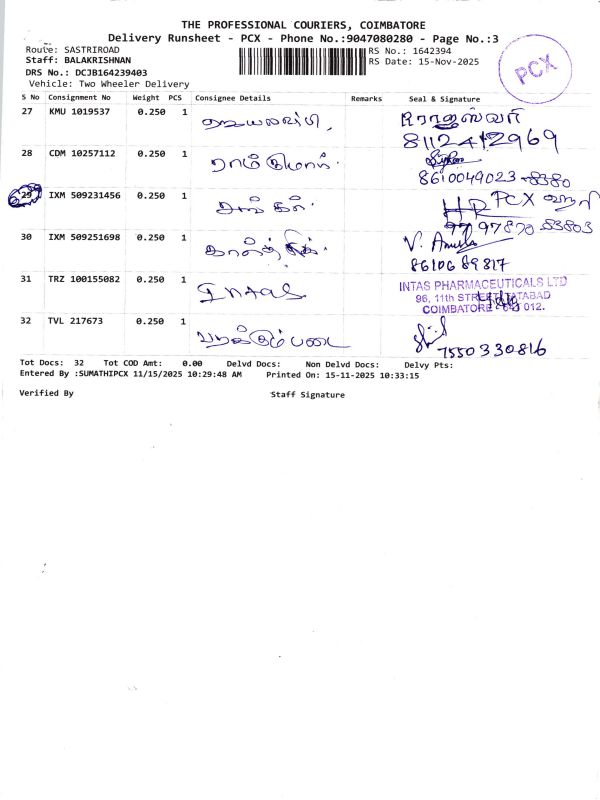 THE PROFESSIONAL COURIERS, COIMBATORE
Delivery Runsheet - PCX - Phone No.:9047080280 - Page No.:3
Route: SASTRIROAD
RS No.: 1642394
Staff: BALAKRISHNAN
RS Date: 15-Nov-2025
DRS No.: DCJB164239403
Vehicle: Two Wheeler Delivery
PCX
S No Consignment No Weight PCS Consignee Details Remarks Seal & Signature
27 KMU 1019537 0.250 1
8112412969
28 CDM 10257112 0.250 1
8610049023 -8380
29 IXM 509231456 0.250 1
HR PCX
97978 70 -83803
30 IXM 509251698 0.250 1
V. Amula
86106 89817
31 TRZ 100155082 0.250 1 Intas
INTAS PHARMACEUTICALS LTD
96, 11th STREET, TATABAD
COIMBATORE - 641 012.
32 TVL 217673 0.250 1
7550330816
Tot Docs: 32 Tot COD Amt: 0.00 Delvd Docs: Non Delvd Docs: Delvy Pts:
Entered By :SUMATHIPCX 11/15/2025 10:29:48 AM Printed On: 15-11-2025 10:33:15
Verified By Staff Signature